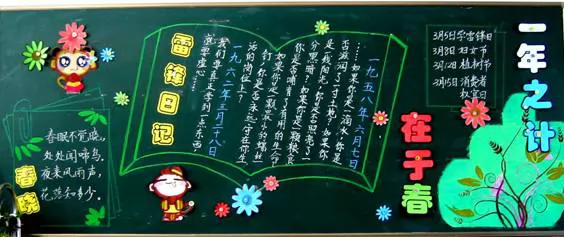 一年之计
在于春
3月5日学雷锋日
3月8日妇女节
3月12日植树节
3月15日消费者
权宜日
雷锋日记
一九五八年六月七日
……如果你是一滴水,你是
否滋润了一寸土地?如果你
是一线阳光,你是否照亮了一
分黑暗?如果你是一颗粮食,
你是否哺育了有用的生命?
如果你是一颗最小的螺丝
钉,你是否永远守在你生
活的岗位上?
一九六二年三月二十八日
我们要真正学到一点东西,
就要虚心…
春晓
春眠不觉晓,
处处闻啼鸟。
夜来风雨声,
花落知多少。